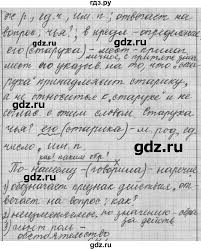 гдз.ру
ж. р., ед. ч., им. п.; отвечает на
вопрос: чья?; в предл. - определение
его (старуха) - мест. - прилаг.
имеет его указыв. на то, что "ста-
руха" принадлежит старику,
а не относится к "старухе" и не
соглас. с этим словом. Старуха
чья? его (старика) - м. род, ед.
число, им. п.
как? каким обр.?
По-нашему - (говорила) - наречие
1) обозначает признак действия, от
вечает на вопрос: как?
2) неизменяемое, по значению - обра-
за действ.
3) синт. роль -
обстоятельство
gdz.ru